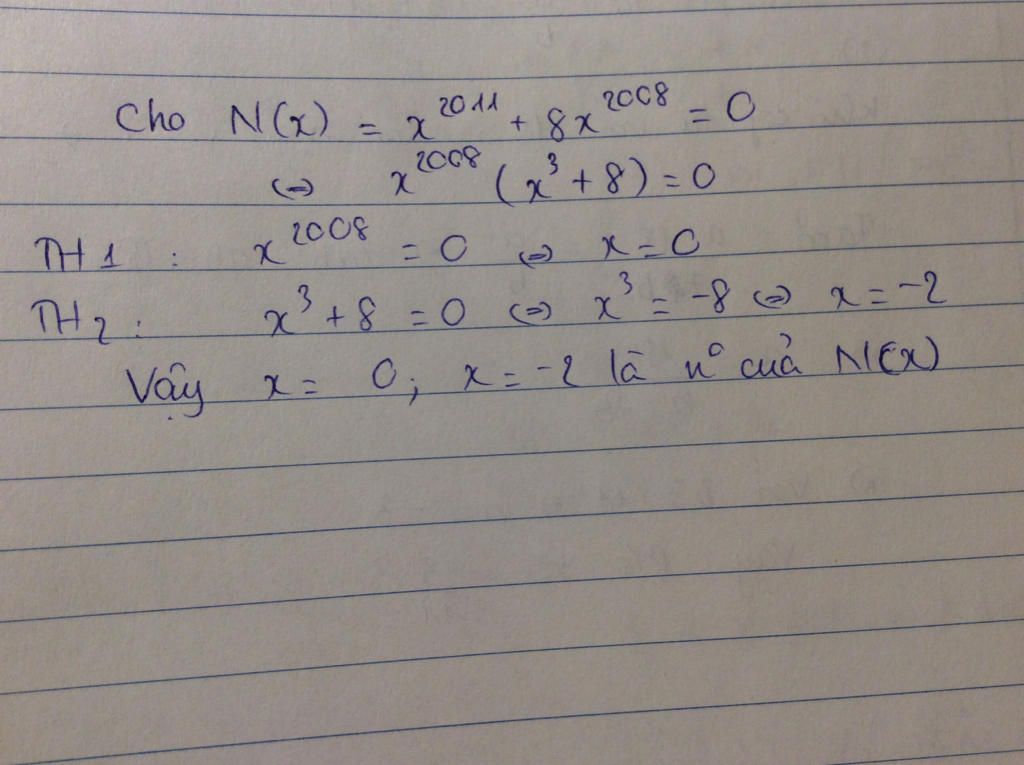 Cho N(x) = x^2011 + 8x^2008 = 0
<=> x^2008 (x^3 + 8) = 0
TH1 : x^2008 = 0 <=> x = 0
TH2 : x^3 + 8 = 0 <=> x^3 = -8 <=> x = -2
Vậy x = 0; x = -2 là n° của N(x)